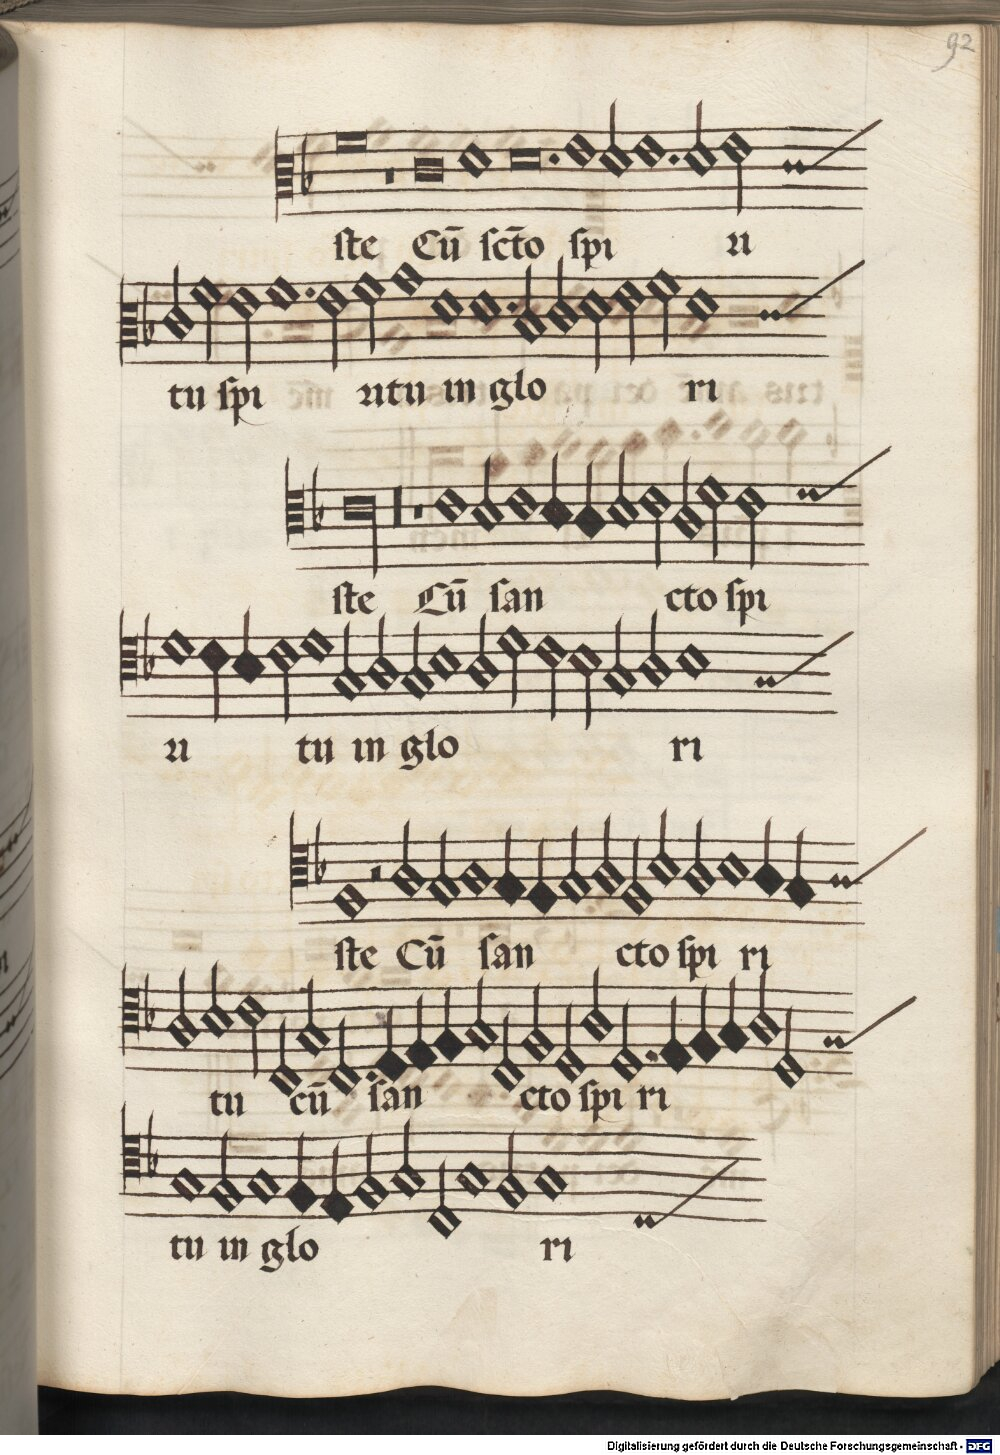 92
ste Cū scto̅ spi ri
tu spi ritu in glo ri
ste Cū san cto spi
ri tu in glo ri
ste Cū san cto spi ri
tu cū san cto spi ri
tu in glo ri
Digitalisierung gefördert durch die Deutsche Forschungsgemeinschaft - DFG